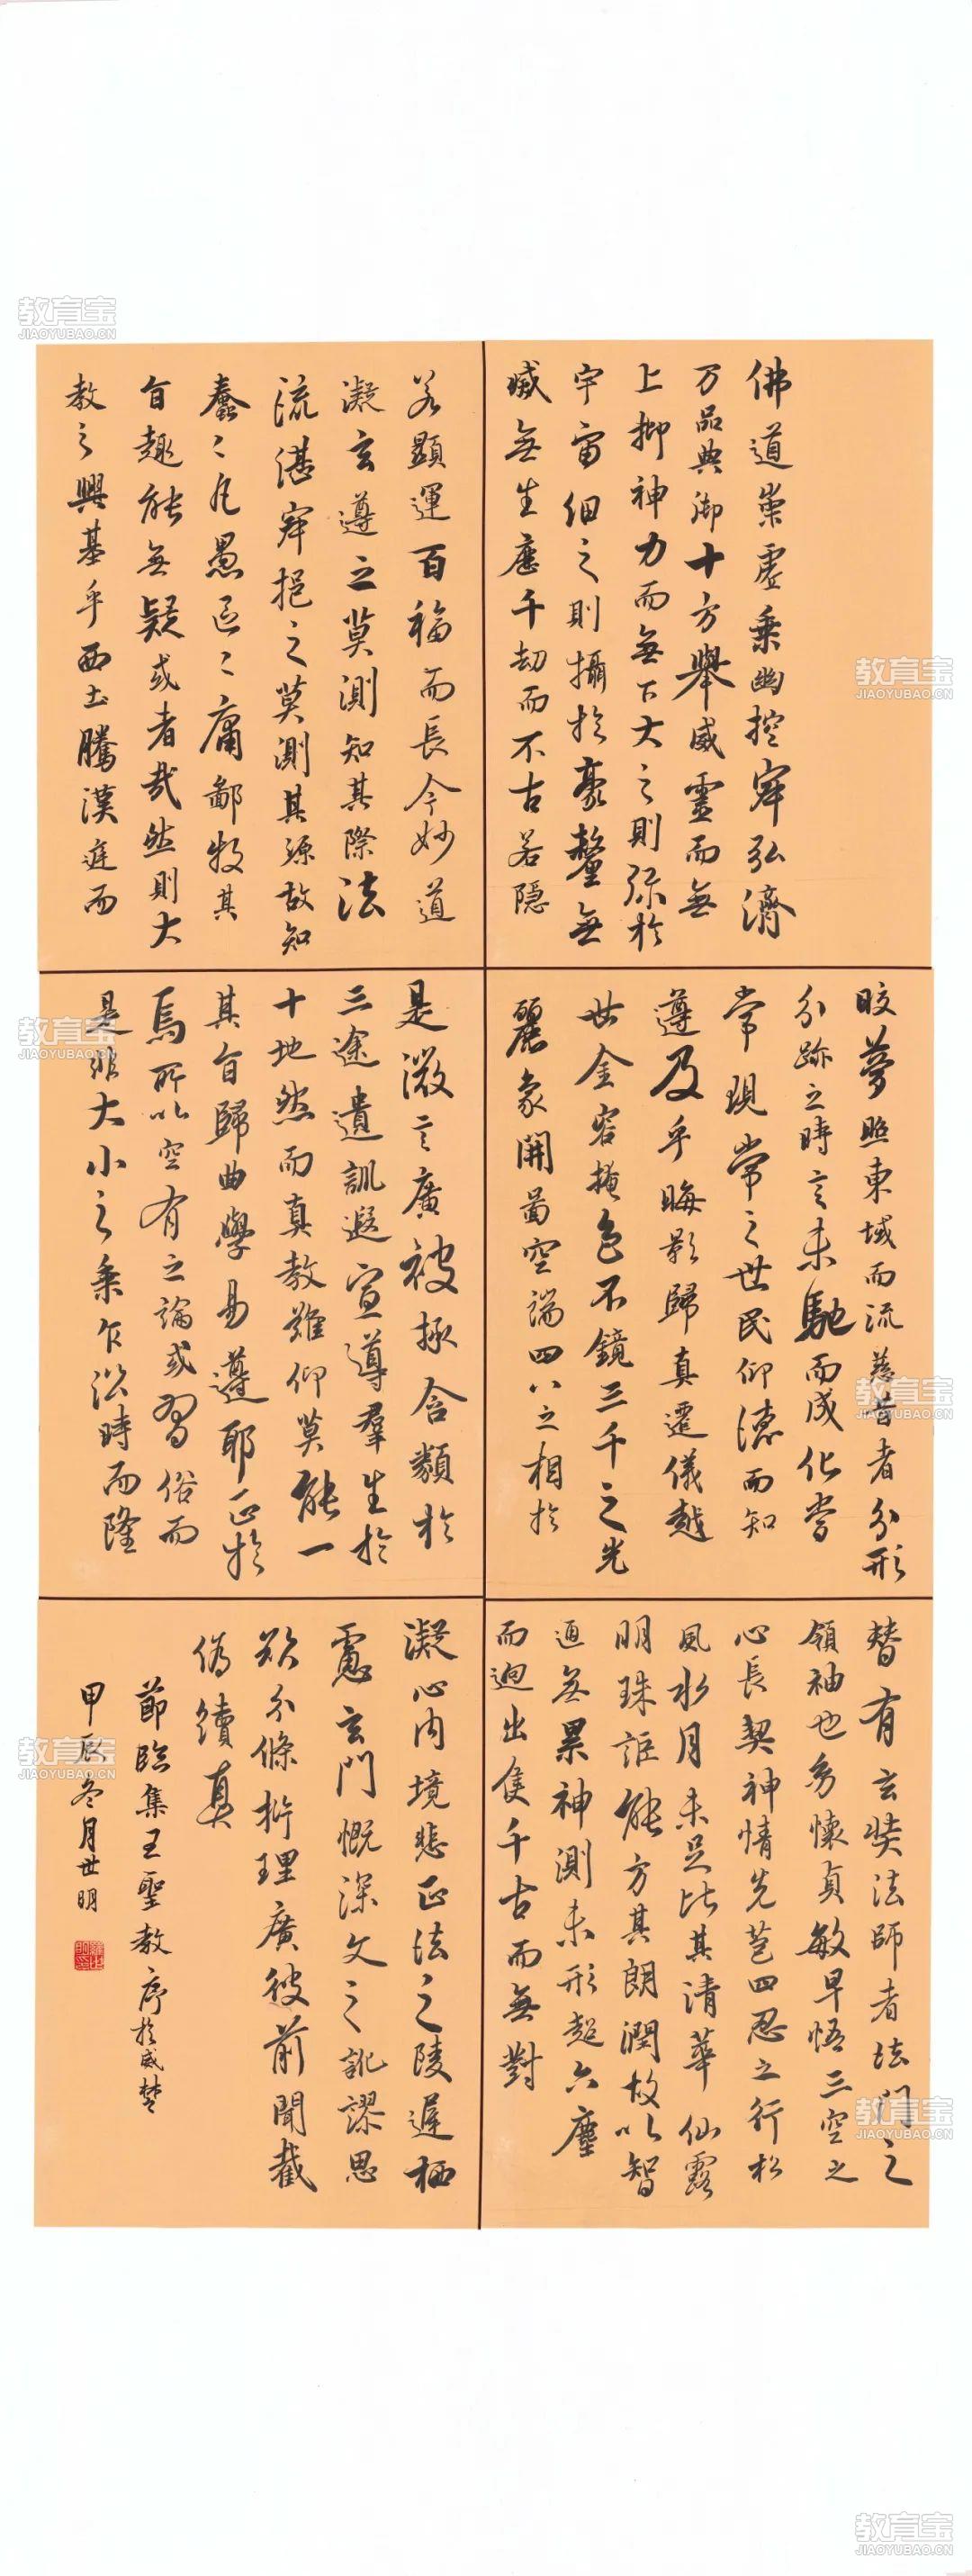 佛道崇虛乘幽控寂弘濟
万品典御十方舉威靈而無
上抑神力而無下大之則彌於
宇宙細之則攝於豪釐無
滅無生應千劫而不古若隱
若顯運百福而長今妙道
凝玄遵之莫測知其際法
流湛寂挹之莫測其源故知
蠢〻凡愚區〻庸鄙投其
旨趣能無疑或者哉然則大
教之興基乎西土騰漢庭而
晈夢照東域而流慈昔者分形
分跡之時言未馳而成化當
常現常之世民仰德而知
遵及乎晦影歸真遷儀越
世金容掩色不鏡三千之光
麗象開啚空端四八之相於
是微言廣被拯含類於
三途遺訓遐宣導羣生於
十地然而真教難仰莫能一
其旨歸曲學易遵耶正於
焉所以空有之論或習俗而
是非大小之乘乍沿時而隆
替有玄奘法師者法門之
領袖也幼懷貞敏早悟三空之
心長契神情先苞四忍之行松
風水月未足比其清華仙露
明珠詎能方其朗潤故以智
通無累神測未形超六塵
而迥出隻千古而無對
凝心內境悲正法之陵遲栖
慮玄門慨深文之訛謬思
欲分條析理廣彼前聞截
偽續真
節臨集王聖教序於威楚
甲辰冬月世明
教育宝
JIAOYUBAO.CN
教育宝
JIAOYUBAO.CN
教育宝
JIAOYUBAO.CN
教育宝
JIAOYUBAO.CN
教育宝
JIAOYUBAO.CN
教育宝
JIAOYUBAO.CN
教育宝
JIAOYUBAO.CN